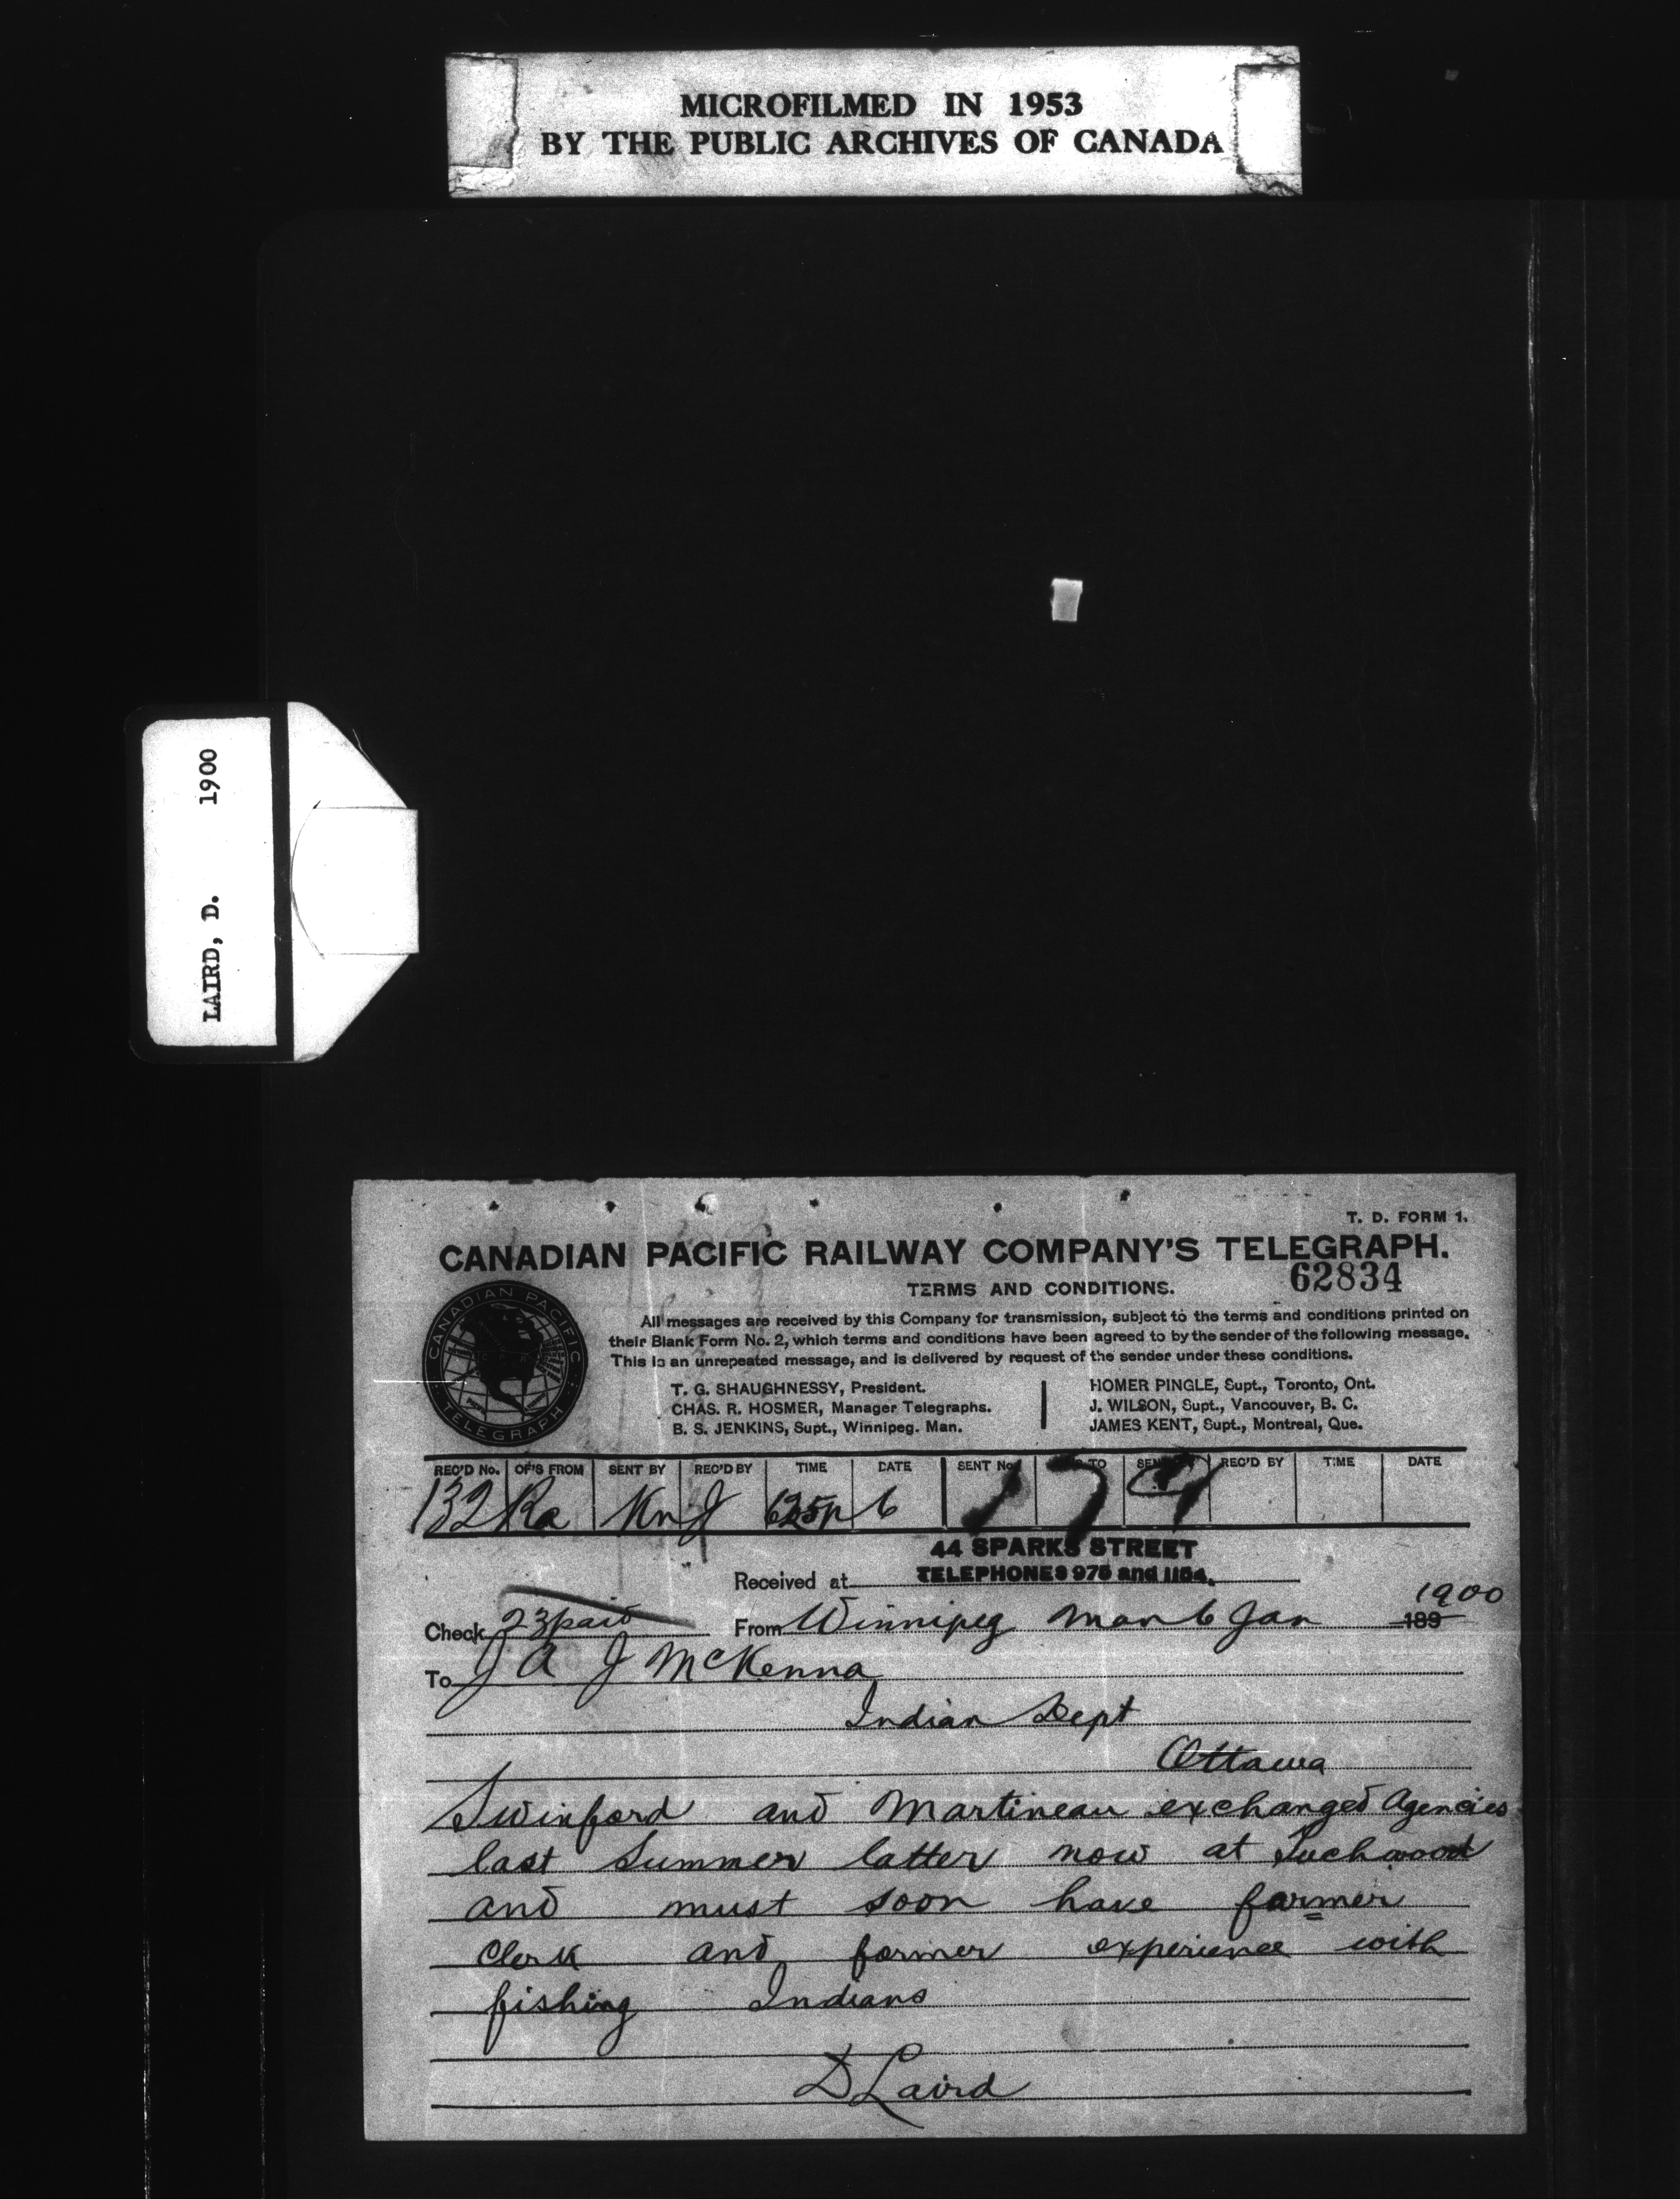 MICROFILMED IN 1953
BY THE PUBLIC ARCHIVES OF CANADA
LAIRD, D. 1900
T. D. FORM 1.
CANADIAN PACIFIC RAILWAY COMPANY'S TELEGRAPH.
62834
TERMS AND CONDITIONS.
CANADIAN PACIFIC
TELEGRAPH
All messages are received by this Company for transmission, subject to the terms and conditions printed on
their Blank Form No. 2, which terms and conditions have been agreed to by the sender of the following message.
This is an unrepeated message, and is delivered by request of the sender under these conditions.
T. G. SHAUGHNESSY, President.
CHAS. R. HOSMER, Manager Telegraphs.
B. S. JENKINS, Supt., Winnipeg. Man.
HOMER PINGLE, Supt., Toronto, Ont.
J. WILSON, Supt., Vancouver, B. C.
JAMES KENT, Supt., Montreal, Que.
REC'D No. OF'S FROM SENT BY REC'D BY TIME DATE SENT No. TO REC'D BY TIME DATE
132 Ra Kn J 625p 6
44 SPARKS STREET
Received at TELEPHONES 975 and 1154.
1900
Check 23 paid From Winnipeg Man 6 Jan 189
To J A J McKenna
Indian Dept
Ottawa
Swinford and Martineau exchanged Agencies
last Summer latter now at Tuchwood
and must soon have farmer
Clerk and former experience with
fishing Indians
D Laird